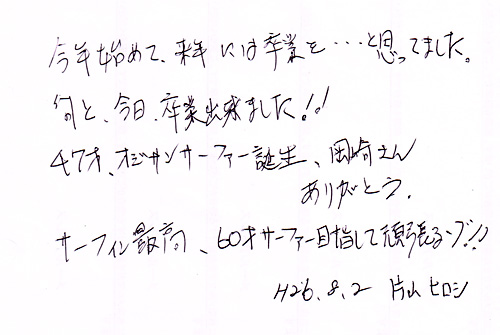 今年始めて、来年には卒業を・・・と思ってました。
何と、今日、卒業出来ました!!
47才、オジサンサーファー誕生、岡崎さん
ありがとう。
サーフィン最高、60才サーファー目指して頑張るゾ!!
H26.8.2 片山ヒロシ